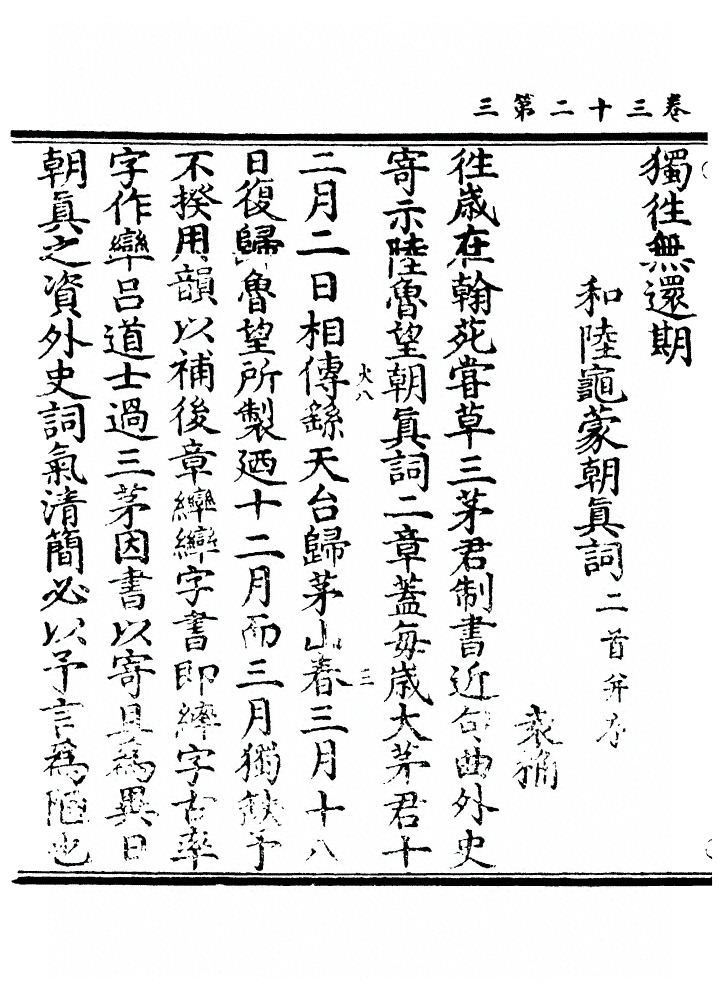 卷三十二第三
獨徃無還期
和陸龜蒙朝眞詞二首并序
袁桷
徃歲在翰苑嘗草三茅君制書近句曲外史
寄示陸魯望朝眞詞二章蓋每歲大茅君十
二月二日相傳繇天台歸茅山春三月十八
日復歸魯望所製廼十二月而三月獨缺予
不揆用韻以補後章
字書即繂字古率
字作
呂道士過三茅因書以寄且為異日
朝眞之資外史詞氣清簡必以予言為陋也
火八
三